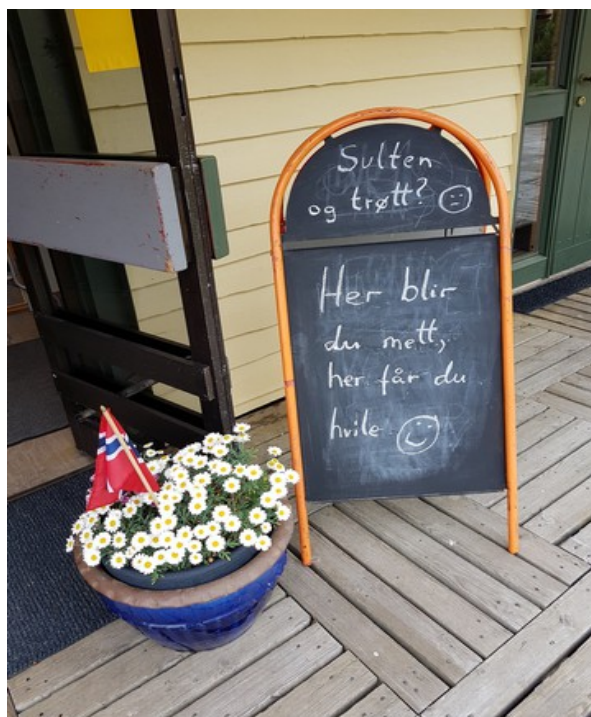 Sulten
og trøtt?
Her blir
du mett,
her får du
hvile